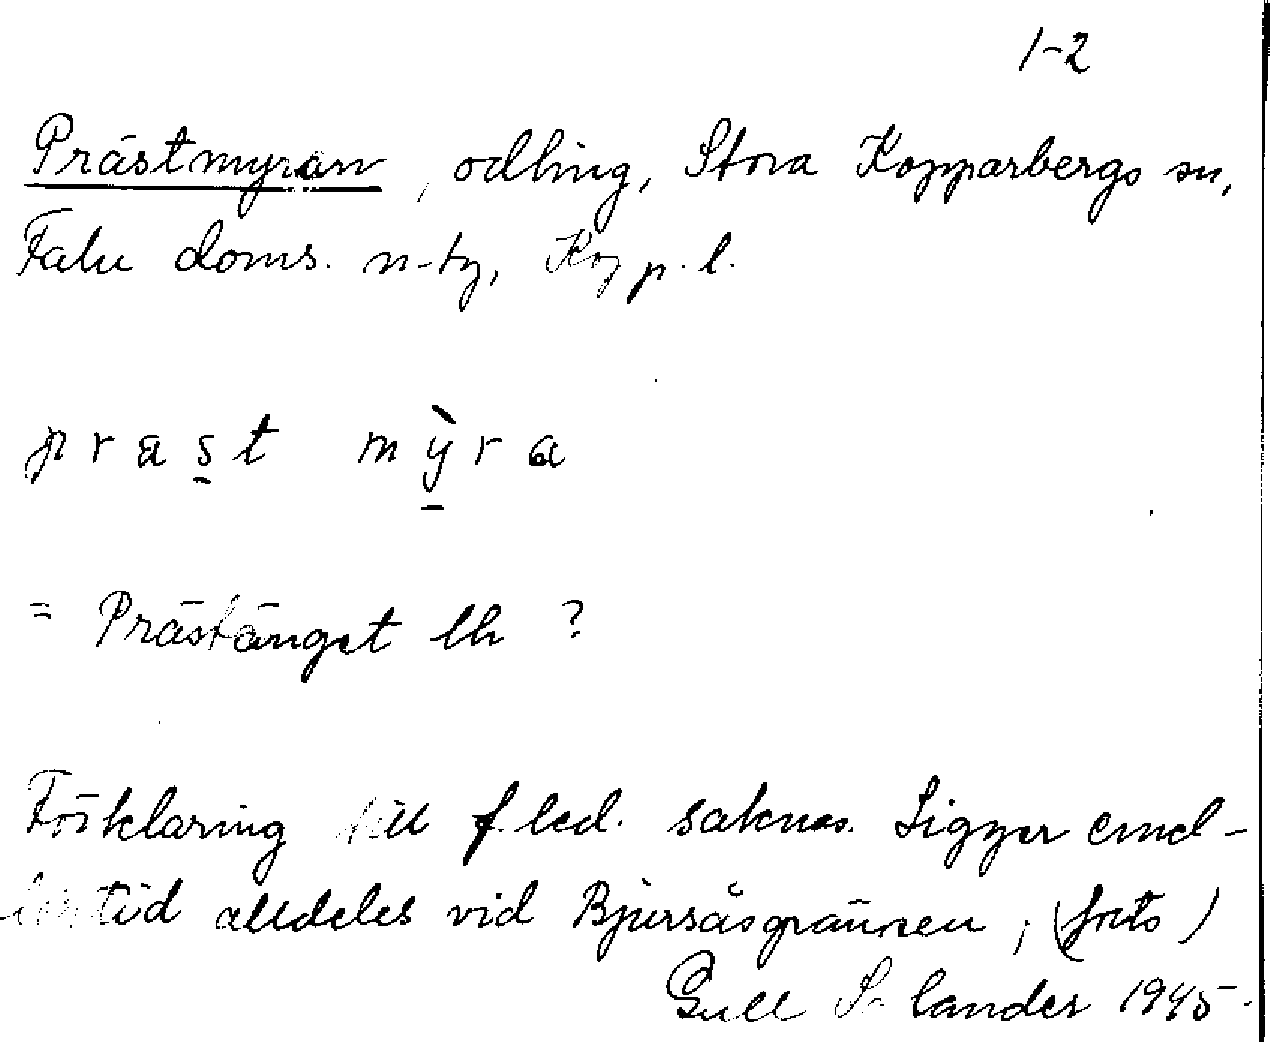 1-2
Prästmyran, odling, Stora Kopparbergs sn,
Falu doms. n-tg, Kopp.l.
prast mỳra
= Prästänget lh ?
Förklaring till f.led. saknas. Ligger emel-
lertid alldeles vid Bjursåsgränsen,
Gull Solander 1945.